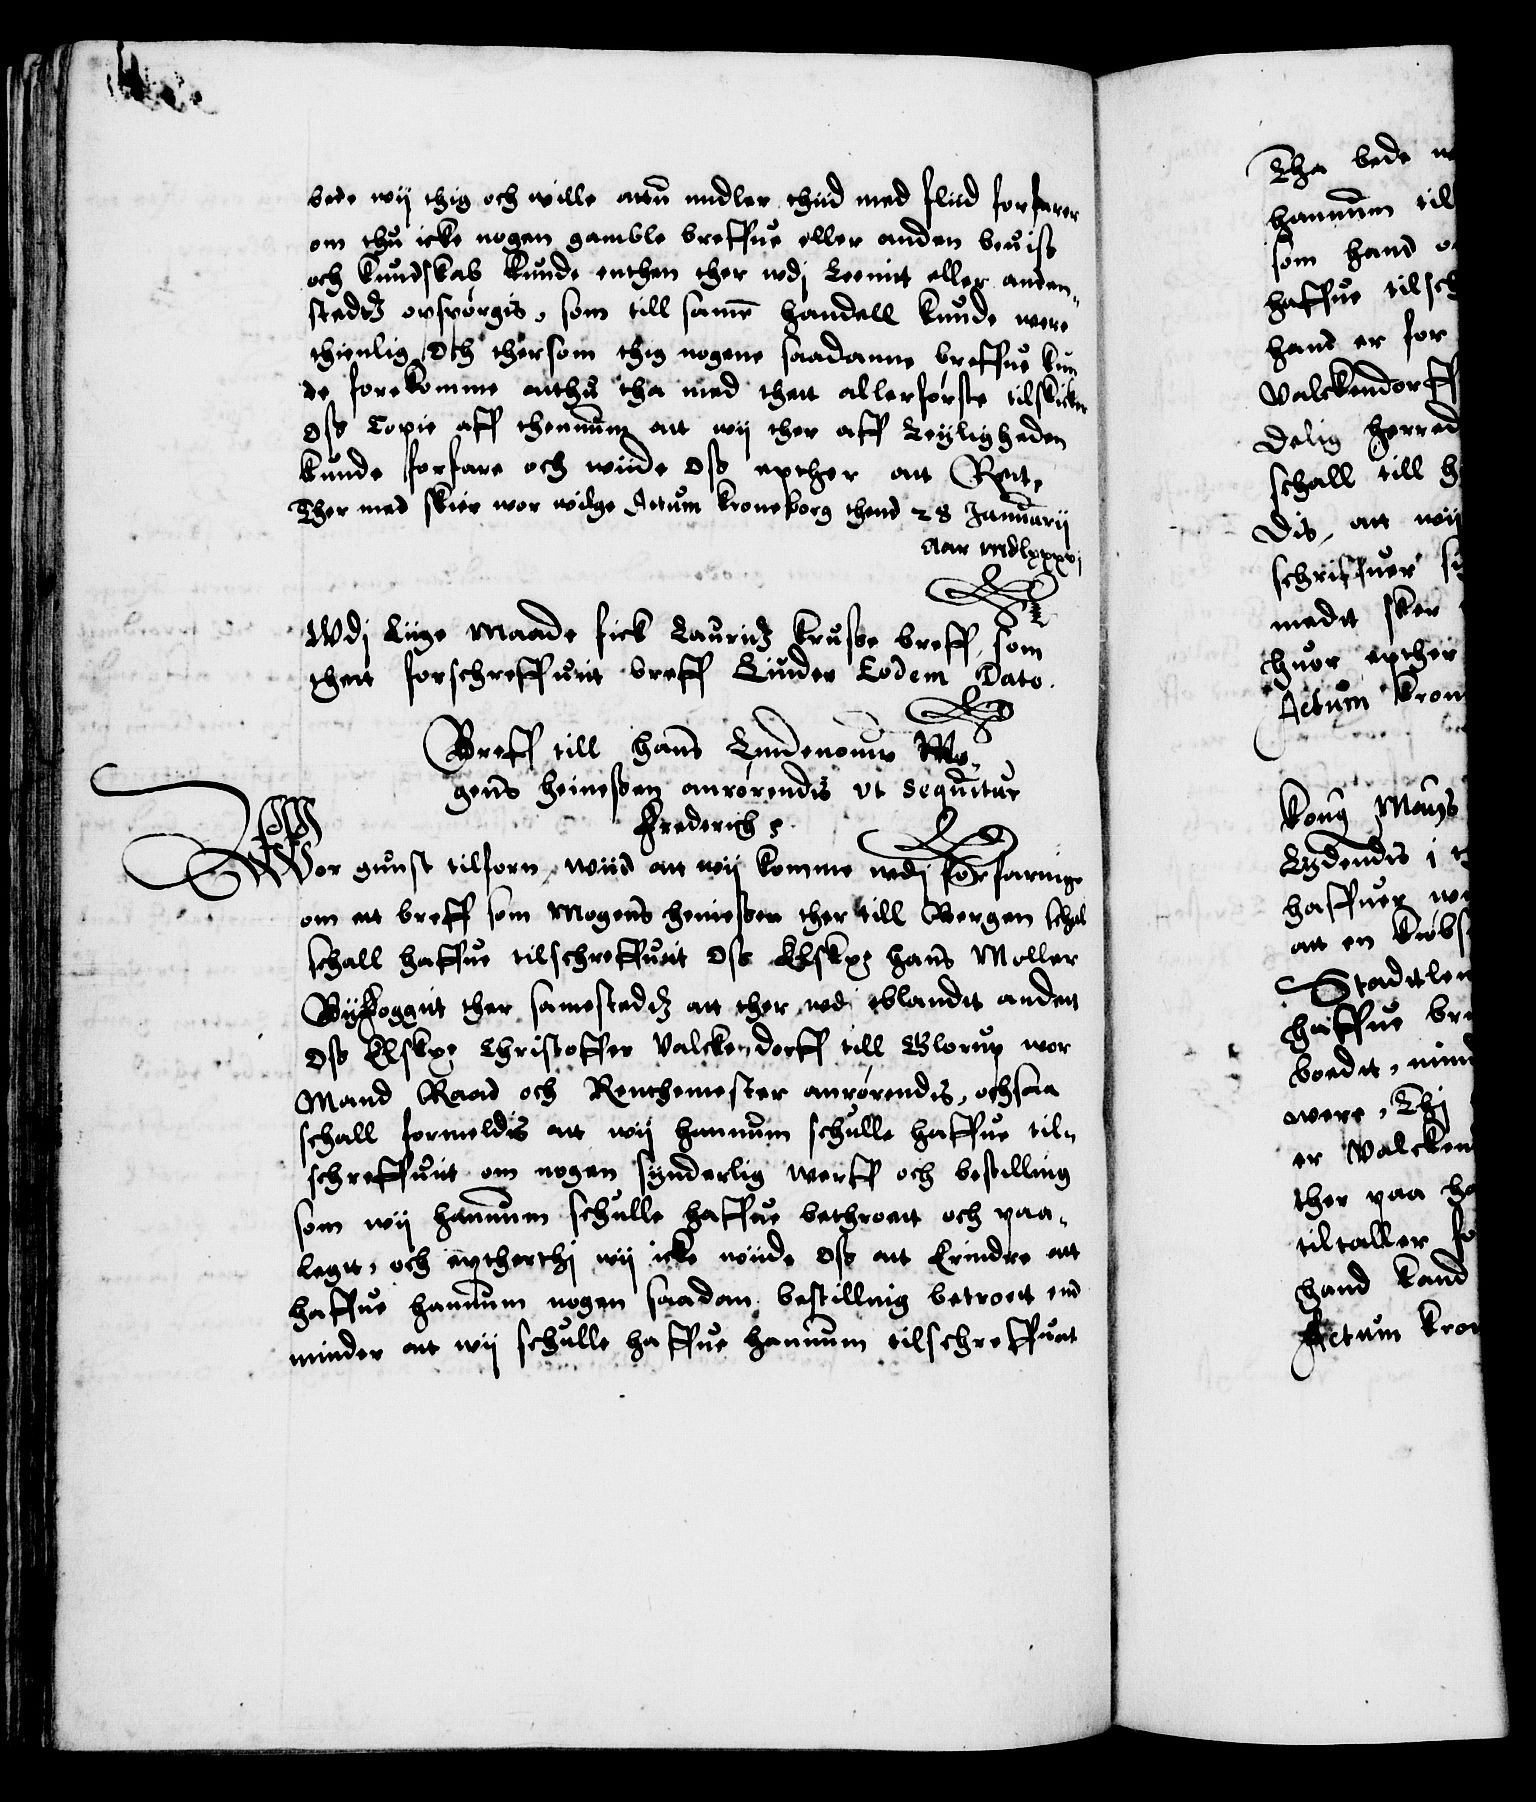 bede wij thig och wille attu midler thiid med fliid forfarer
om thu icke nogen gamble breffue eller anden beuiss
och kundskab kunde enthen ther wdj Leenit eller anden-
stedtz opspørgis, som till same handell kunde were
thienlig Och thersom thig nogene saadanne breffue kun
de forekomme atthu tha med thett allerførste tilskicker
Oss Copie aff thennum att wij ther aff Leyligheden
kunde forfare och wiide Oss epther att Rette
Ther med skier wor wilge Actum Kroneborg thend 28 Januarij
Aar mdlxxxvj
Wdj Liige Maade fick Lauridz Krusse breff, som
thett forschreffuit breff Liuder Eodem Dato.
Breff till Hans Lindenouw Mo-
gens Heinessen anrørendis vt Sequitur
Frederich
Wor gunst tilforn, wiid att wij komme wdj forfaringe
om ett breff som Mogens Heniessen ther till Bergen schal
schall haffue tilschreffuit Oss Elskpe Hans Moller
Byfoggit ther samestedtz att ther wdj iblandt andett
Oss Elskpe Christoffer Valckendorff till Glorup wor
Mand Raad och Renthemester anrørendis, ochsaa
schall formeldis att wij hannum schulle haffue til-
schreffuit om nogen synderlig werff och bestilling
som wij hannum schulle haffue bethroett och paa-
legt, och eptherthj wij icke wiide Oss att Erindre att
haffue hannum nogen saadan bestilling betroett end
minder att wij schulle haffue hannum tilschreffuit
Tha bede
hannum til
som hand
haffue tilsch
hand er for
Valckendorff
Delig herred
schall till
Dis, att wij
schriffuer
medt sker
huor epther
Actum Kron
Kong Mayts
Lydendis i
haffuer
att en Kiøbs
Stadtlen
haffue bre
boedt, mind
were, Thj
er Valcken
ther paa
tiltaller fo
hand kand
Actum Kron